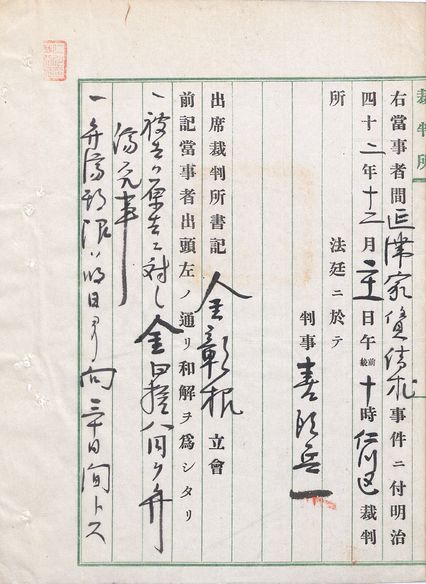 裁判所
右當事者間延滯家賃請求事件ニ付明治
四十二年十二月日午前後十時仁川区裁判
所 法廷ニ於テ
判事
出席裁判所書記 金彰 立會
前記當事者出頭左ノ通リ和解ヲ爲シタリ
一被告ハ原告ニ対し金拾八円ヲ弁
済
一弁済期限ハ明日ヨリ向三十日間トス